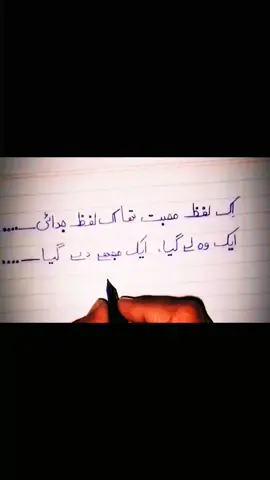 اِک لفظ محبت تھا اک لفظ جدائی ـــ....
ایک وہ لے گیا، ایک مجھے دے گیا ـــ....